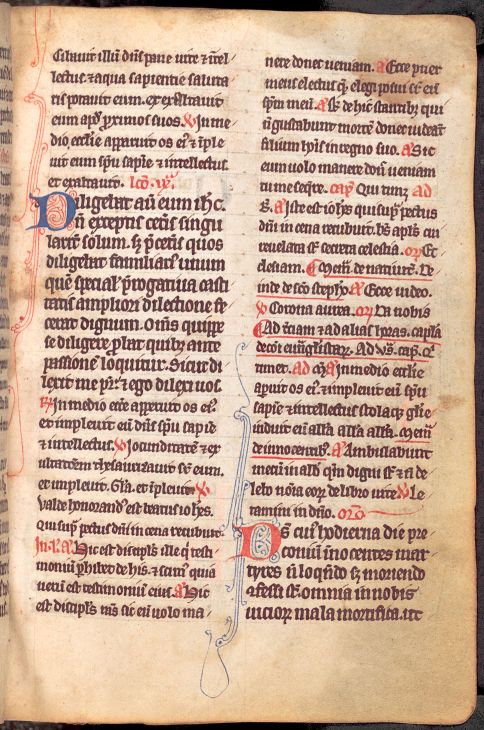 cibauit illũ dñs pane uite ⁊ ĩtel/
lectus ⁊ aqua sapientie saluta
ris potauit eum. ex exaltauit
eum apđ proximos suos. V In me
dio ecclie apparuit os eı᷒ ⁊ ĩple
uit eum spũ sapıẽ ⁊ intellectus.
et exaltauit.
Diligebat aũ eum ihc.
ñ exceptis cetis singu
larit̃ solum. s; p̃ cetis quos
diligebat familiari᷒ unum
quẽ special᷒ prerogatiua casti
tatis ampliori dilectione fe
cerat dignum. Om̃s quippe
se diligere plat quibꝫ ante
passionẽ loquitur. Sicut di
lexit me pr̃. ⁊ ego dilexi uos.
R In medio eccle apperuit os eı᷒.
et impleuit eum dñs spũ sapie
⁊ intellectus. V Iocunditatẽ ⁊ ex
ultationẽ thesaurizauit sr̃ eum.
et impleuit. Gła. et ĩpleuit. V
Valde honorandꝰ est beatus iohes.
Qui supͣ pectus dñi in cena recubuit.
In. l. a. Hic est discipls ille q̃ testi
moniũ phibeo de his. ⁊ scim᷒ quia
uerũ est testimoniũ eius. a Hic
est discipls mꝰ sic eũ uolo ma/
nere donec ueniam. a Ecce puer
meus electus quẽ elegi posui sr̃ eũ
spm̃ meũ. a St̃ de hic stantibꝫ qui
ñ gustabunt mortẽ donec uideant
filium hõis in regno suo. a Sic
eum uolo manere donͨ ueniam
tu me seqr̃e. cap᷒ Qui timꝫ ad
B. a Iste est iohẽs qui supͣ pectus
dñi in cena recubuit. bs̃ apłs cui
reuelata st̃ secreta celestia. or̃o Ec
clesiam. Mem̃ de natiuit̃e. De
inde de sc̃o stephõ. a Ecce uideo.
V Corona aurea. or̃o Da nobis
Ad t̃ciam ⁊ ad alias horas. capła
de cõi euuãglistarꝫ. Ad vs̃. cap. Q̾
timet. ad m̃ a In medio ecclie
apuit os eı᷒. ⁊ impleuit eũ spũ
sapie ⁊ intellectus stolaqꝫ glie
induit eũ alła alła alła. Mem̃
de innocentibꝫ. a Ambulabunt
mecũ in albꝫ qm̃ digni st̃ ⁊ ñ de
lebo noĩa eoꝝ de libro uite V Le
tamini in dño. or̃o
Ds cuiꝰ hodierna die pre
coniũ innocentes mar
tyres ñ loqñdo sꝫ moriendo
ꝯfessi st̃ omnia in nobis
uicioꝝ mala mortifica. ut